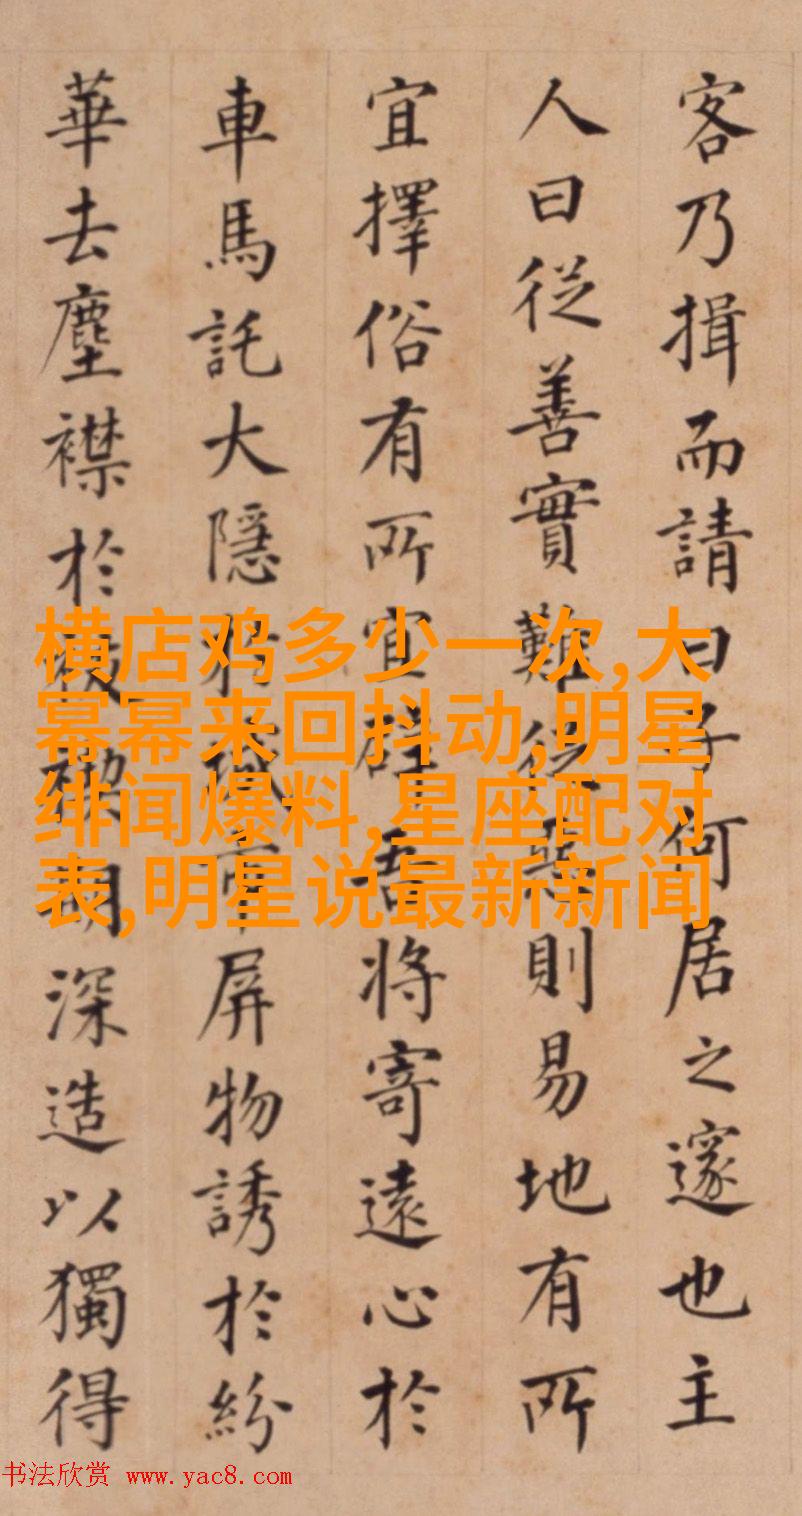 客乃揖而請曰子何居之邃也主
人曰從善實難從惡則易地有所
宜擇俗有所宜吾將寄遠心於
車馬託大隱屏物誘於紛
華去塵襟於深造以獨得
横店鸡多少一次,大
幂幂来回抖动,明星
绯闻爆料,星座配对
表,明星说最新新闻
书法欣赏 www.yac8.com